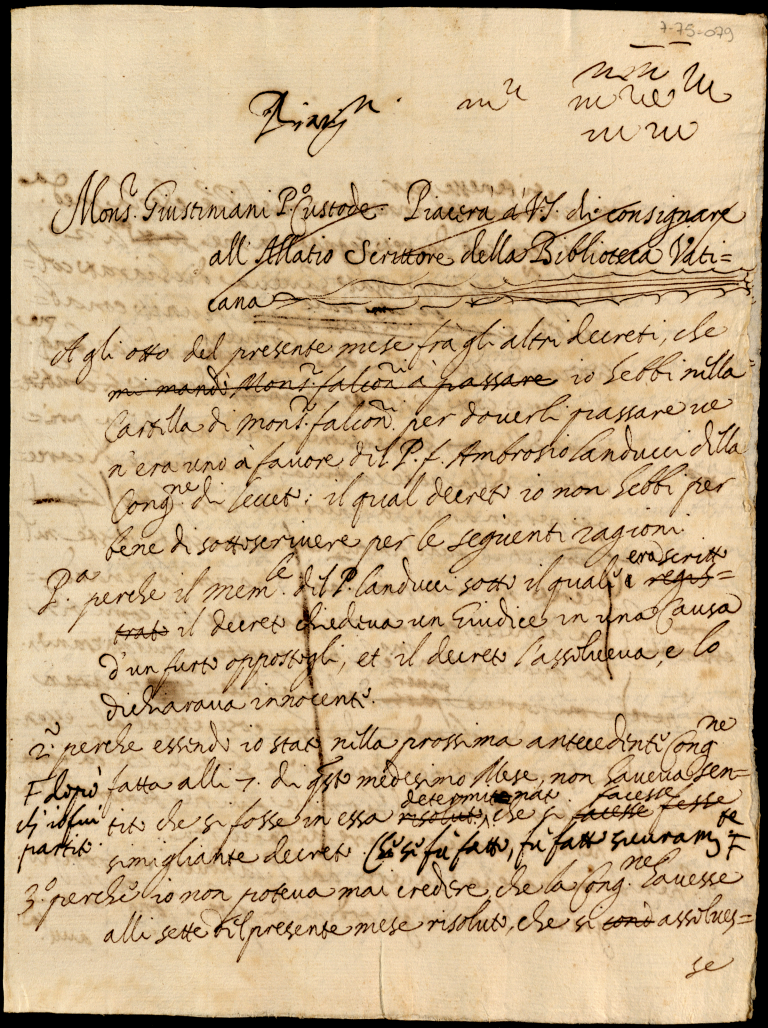 7-75-079
Mons.r Giustiniani P.o Custode. Piacerà à V.S. di consignare
all'Allatio Scrittore della Biblioteca Vati=
cana
A gli otto del presente mese frà gli altri decreti, che
mi mandò Mons.r falcon.i à passare io hebbi nella
Cartella di mons.r falcon.i per doverli passare ve
n'era uno à favore del P. f. Ambrosio Landucci della
Cong.ne di Leccet: il qual decreto io non hebbi per
bene di sottoscrivere per le seguenti ragioni.
P.a perche il mem.le del P. Landucci sotto il quale era scritto regis=
trato il decreto chiedeva un Giudice in una Causa
d'un furto oppostogli, et il decreto l'assolveva, e lo
dichiarava innocente.
2.o perche essendo io stato nella prossima antecedente Cong.ne
fatta alli 7. di q.sto medesimo Mese, non haveva sen=
tito che si fosse in essa risoluto determinato, che si facesse fesse facesse
simigliante decreto. (Se si fù fatto, fù fatto sicuram.te
F dopò
ch'io fui
partito
3.o perche io non poteva mai credere, che la Cong.ne havesse
alli sette del presente mese risoluto, che si assolves=
se